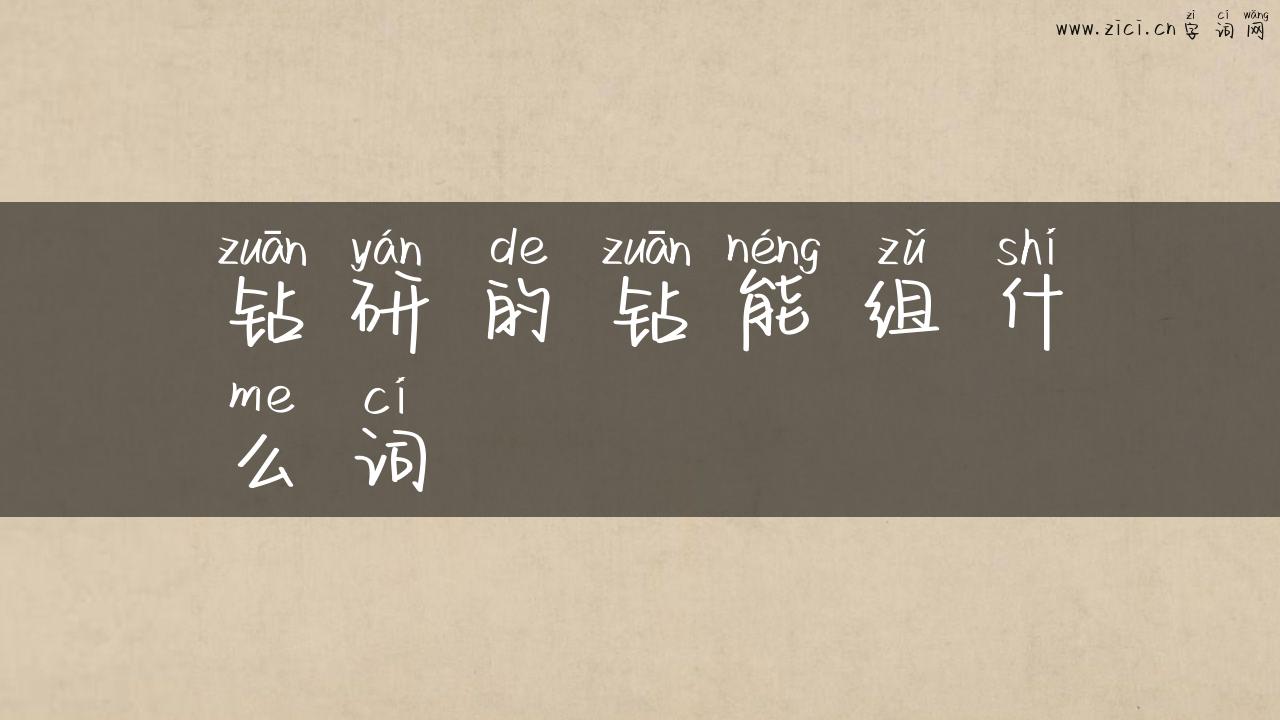 zì cí wǎng
www.zici.cn 字词网
zuān yán de zuān néng zǔ shí
钻研的钻能组什
me cí
么词